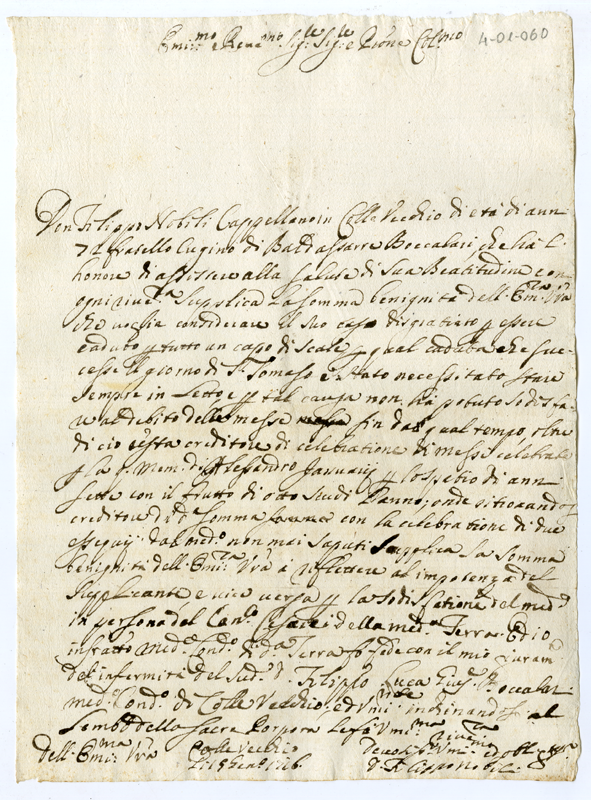 Emi:mo e Reve:mo Sig:re Sig:re e Prone Col:mo 4-01-060
Don Filippo Nobili Cappellano in Colle Vecchio di età di ann
72 fratello Cugino di Baldassarre Boccalari, che hà l'
honore di assistere alla salute di Sua Beatitudine con
ogni supplica la somma benignità dell' Em:za Vra
che voglia considerare il suo caso disgratiato p essere
caduto p tutto un capo di scale p qual caduta che suc-
cesse il giorno di S. Tomaso è stato necessitato stare
sempre in letto e p tal causa non hà potuto sodisfa-
re al debito delle messe fin da qual tempo, oltre
di ciò resta creditore di celebratione di messe celebrate
p la b. mem. di Alessandro Januarij p lo spatio di anni
sette con il frutto di otto scudi l'anno; onde ritrovandosi
creditore di da somma con la celebratione di due
non mai saputi supplica la somma
benignità dell' Emi:za Vra à riflettere al impotenza del
supplicante e vice versa p la sodisfatione del med:o
in persona del Can:o della med:a Terra. Ed io
infratto Med:o Cond:o di da Terra fò fede con il mio juram:to
del infermità del sud:o D. Filippo Luca Boccalari
med:o Cond:o di Colle Vecchio, ed inchinandosi al
lembo della sacra Porpora
dell' Emi:za Vra Colle Vecchio
D. Filippo Nobili